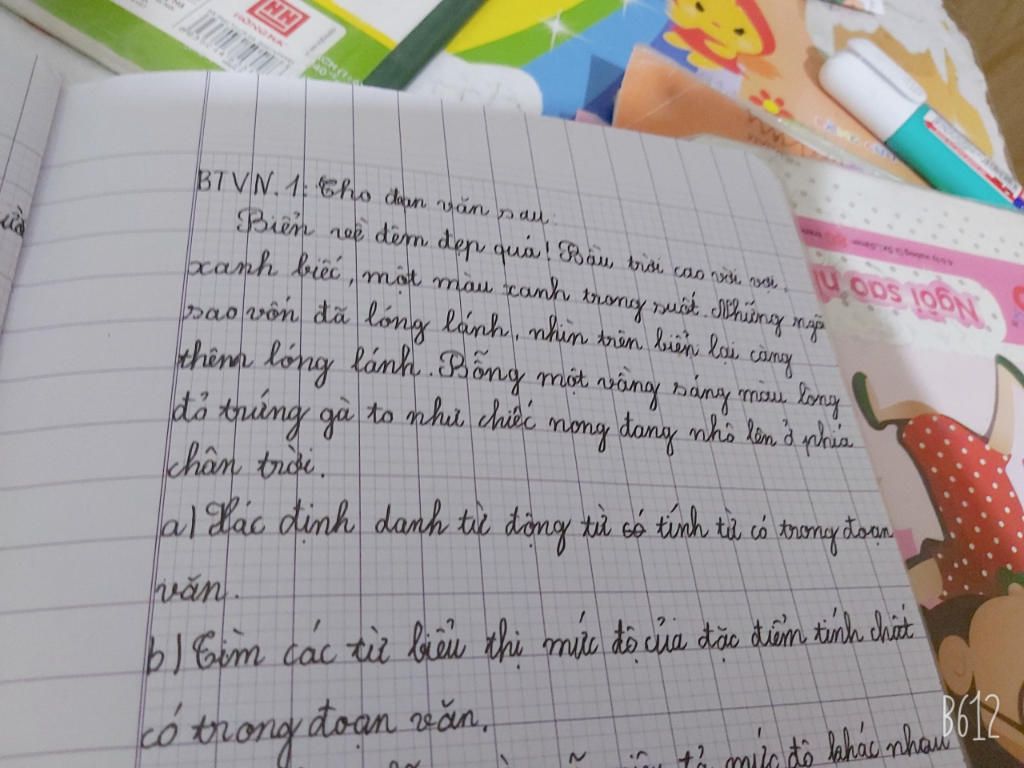 HH
HỒNG HÀ
BTVN. 1: Cho đoạn văn sau:
Biển về đêm đẹp quá! Bầu trời cao vời vợi,
xanh biếc, một màu xanh trong suốt. Những ngô
sao vốn đã lóng lánh, nhìn trên biển lại càng
thêm lóng lánh. Bỗng một vầng sáng màu lòng
đỏ trứng gà to như chiếc nong đang nhô lên ở phía
chân trời.
a) Xác định danh từ động từ tính từ có trong đoạn
văn.
b) Tìm các từ biểu thị mức độ của đặc điểm tính chất
có trong đoạn văn.
mức độ khác nhau
Ngôi sao
B612